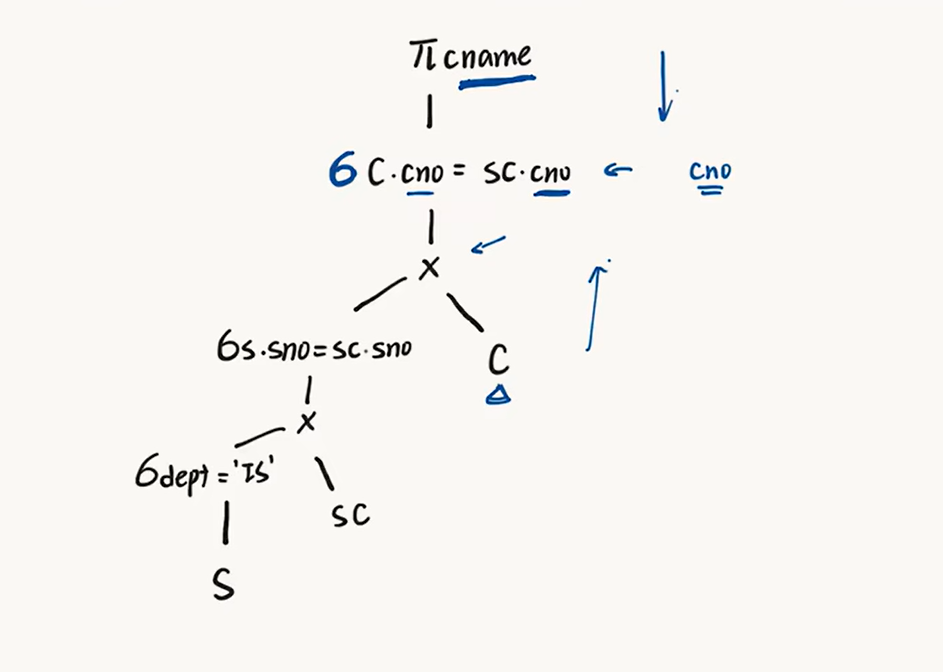 π cname
6 C.cno = SC.cno ← cno
×
6s.sno=sc.sno
C
×
6dept='IS'
SC
S